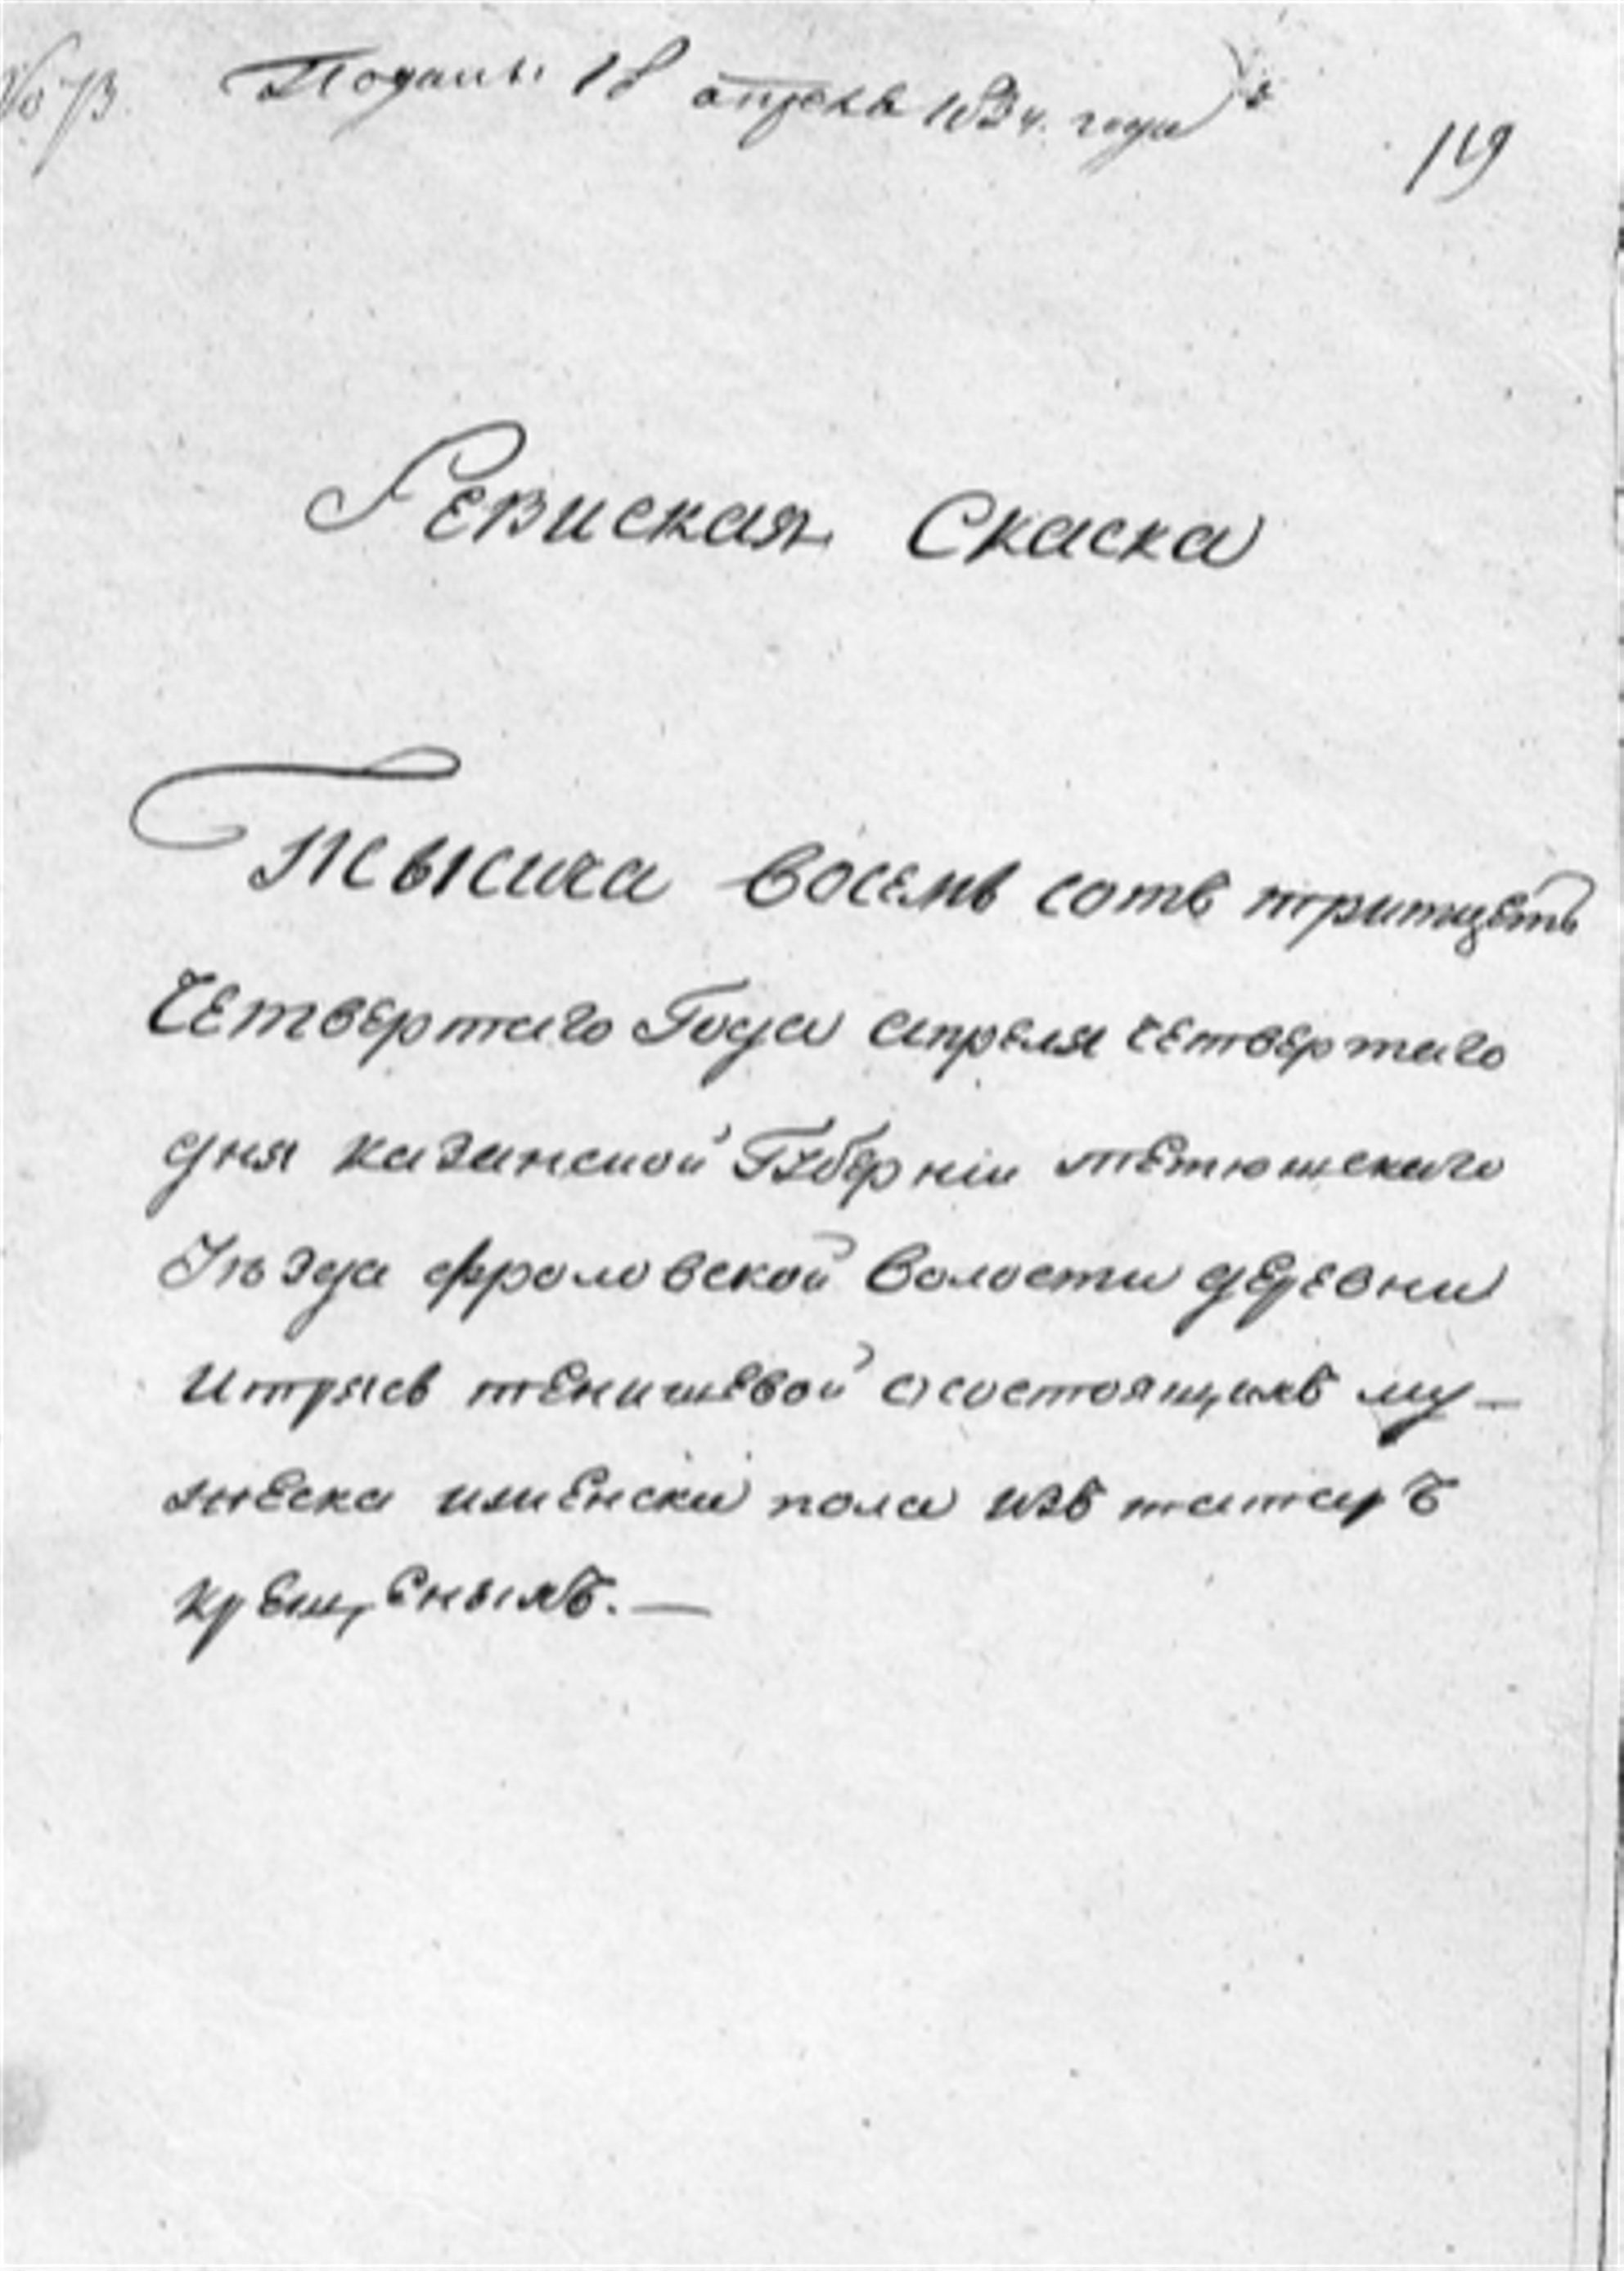 Поданы 18 апреля 1834. года
119
Ревиская Скаска
Тысича восемь сотъ тритцеть
Четвертаго Года апреля четвертаго
дня казанской Губерніи тетюшскаго
Уѣзда фроловской волости деревни
тенишевой осостоящихъ му-
жеска иженска пола изъ татаръ
крещеныхъ. —